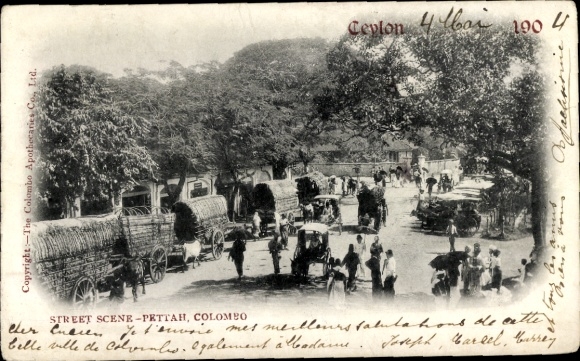 Ceylon 4 Mai 1904
Copyright:—The Colombo Apothecaries Co., Ltd.
STREET SCENE—PETTAH, COLOMBO
Cher Lucien Je t'envoie mes meilleurs salutations de cette
belle ville de Colombo. Egalement à Madame. Joseph, Marcel,
à vous tous